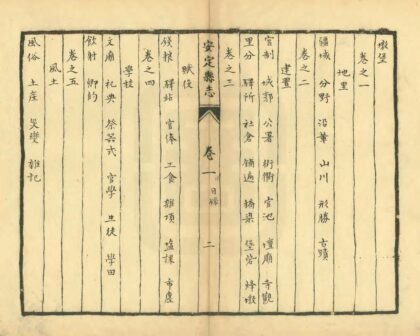 墩堡
卷之一
地里
疆域 分野 沿革 山川 形勝 古蹟
卷之二
建置
官制 城郭 公署 街衢 官池 壇廟 寺觀
里分 驛所 社倉 舖遞 橋梁 堡砦 烽墩
卷之三
安定縣志 卷一 目録 二
賦役
錢粮 驛站 官俸 工食 雜項 鹽課 市廛
卷之四
學校
文廟 祀典 祭器式 官學 生徒 學田
飲射 鄉約
卷之五
風土
風俗 土產 災變 雜記